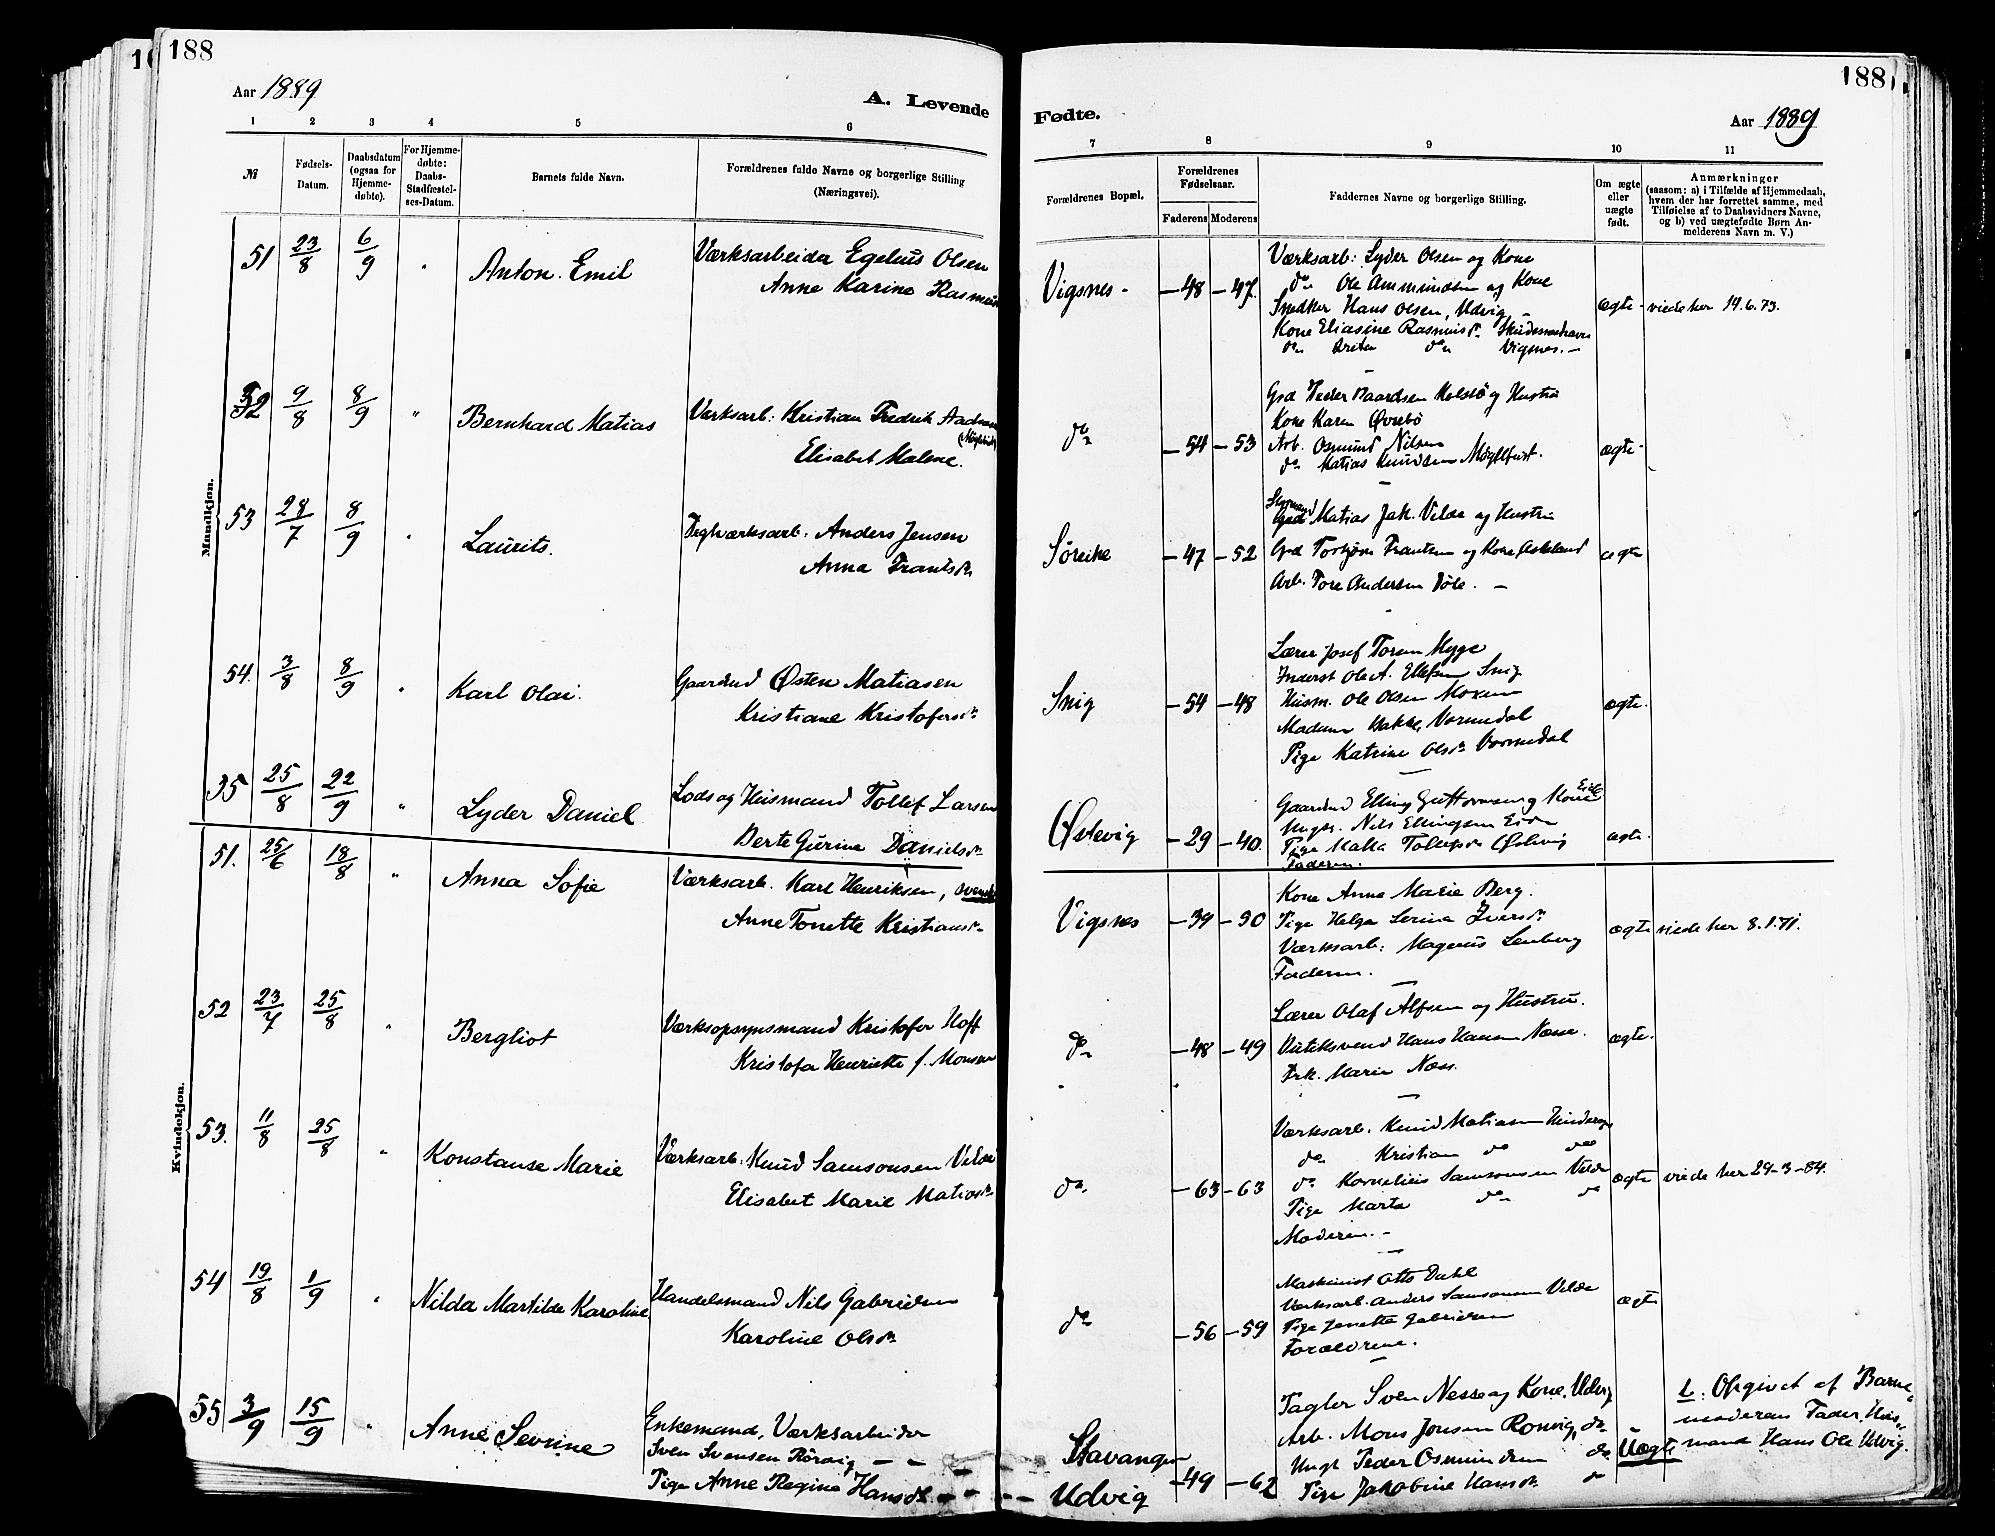 188
Aar 1889
A. Levende
1 2 3 4 5 6
№
Fødsels-Datum.
Daabsdatum (ogsaa for Hjemme-døbte).
For Hjemme-døbte: Daabs-Stadfæstel-ses-Datum.
Barnets fulde Navn.
Forældrenes fulde Navne og borgerlige Stilling
(Næringsvei).
Mandkjøn.
51 23/8 6/9 " Anton Emil Værksarbeider Egelius Olsen
Anne Karine Rasmusd
52 9/8 8/9 " Bernhard Matias Værksarb: Kristian Fredrik
Elisabet Malene.
53 28/7 8/9 " Laurits. Teglværksarb. Anders Jensen
Anna Frantsdr
54. 3/8 8/9 " Karl Olai. Gaardmd Østen Matiasen
Kristiane Kristofersdr
35 25/8 22/9 " Lyder Daniel Lods og Husmand Tollef Larsen
Berte Gurine Danielsdr
Kvindekjøn.
51. 25/6 18/8 " Anna Sofie Værksarb. Karl Henriksen, svensk
Anne Tonette Kristiansdr
52 23/7 25/8 " Bergliot Værksopsynsmand Kristofer Hoff
Kristofa Henriette f. Monsen
53. 11/8 25/8 " Konstanse Marie Værksarb: Knud Samsonsen Velde
Elisabet Marie Matiasdr
54 19/8 1/9 " Nilda Martilde Karoline Handelsmand Nils Gabrielsen
Karoline Olsdr
55 3/9 15/9 " Anne Sevrine Enkemand, Værksarbeider
Sven Svensen Rörvig — —
Pige Anne Regine Hansdr
188
Fødte.
Aar 1889
7 8 9 10 11
Forældrenes Bopæl.
Forældrenes Fødselsaar.
Faderens Moderens
Faddernes Navne og borgerlige Stilling.
Om ægte eller uægte født.
Anmærkninger
(saasom: a) i Tilfælde af Hjemmedaab,
hvem der har forrettet samme, med
Tilføielse af to Daabsvidners Navne,
og b) ved uægtefødte Børn An-
melderens Navn m. V.)
Værksarb: Lyder Olsen og Kone
do Ole Ammundsen og Kone
Vigsnes - -48 -47. Snedker Hans Olsen, Udvig - ægte - viede her 14.6.73.
Kone Eliasine Rasmusdr Skudesneshavn
do do Vigsnes. -
Gmd Peder Baardsen og Hustru
Kone Karen Øvrebö
do -54 -53 Arb. Osmund Nilsen ægte -
do Matias Knudsen
Matias Jak. Velde og Hustru
Söreike -47 -52 Gmd Torbjörn Frantsen og Kone ægte
Arb. Tore Andersen -
Lærer Josef Toresen Mygge
Inderst Ole A. Ellefsen Snig
Snig -54 -48 Husm. Ole Olsen ægte.
Madame Bakke, Vormedal
Pige Katrine Olsdr Vormedal
Gaardmd Elling Guttormsen og Kone Eide
Ungk. Nils Ellingsen Eide
Østevig -29 -40. Pige Malla Tollefsdr Østevig ægte.
Faderen.
Kone Anne Marie Berg.
Vigsnes -39 -30 Pige Helga Serina Iversdr ægte viede her 8.1.71.
Værksarb: Magnus Lenberg
Faderen.
Lærer Olaf Alfsen og Hustru.
do -48 -49 Butiksvend Hans Hansen Næsse. ægte.
Frk. Marie Næss.
Værksarb. Knud Matiasen
do Kristian do do
do -63 -63 do Kornelius Samsonsen Velde ægte viede her 29-3-84.
Pige Marta do do
Moderen. -
Maskinist Otto Dahl
Værksarb. Anders Samsonsen Velde
do -56 -59 Pige Jenette Gabrielsen ægte
Forældrene.
Fagler Sven Nesse og Kone, Udvig
Stavanger Arb. Mons Jonsen Ronvig, do Uægte
Ungk Peder Osmundsen do
Udvig -49 -62 Pige Jakobine Hansdr do
b: Opgivet af Barne-
moderens Fader, Hus-
mand Hans Ole Udvig.